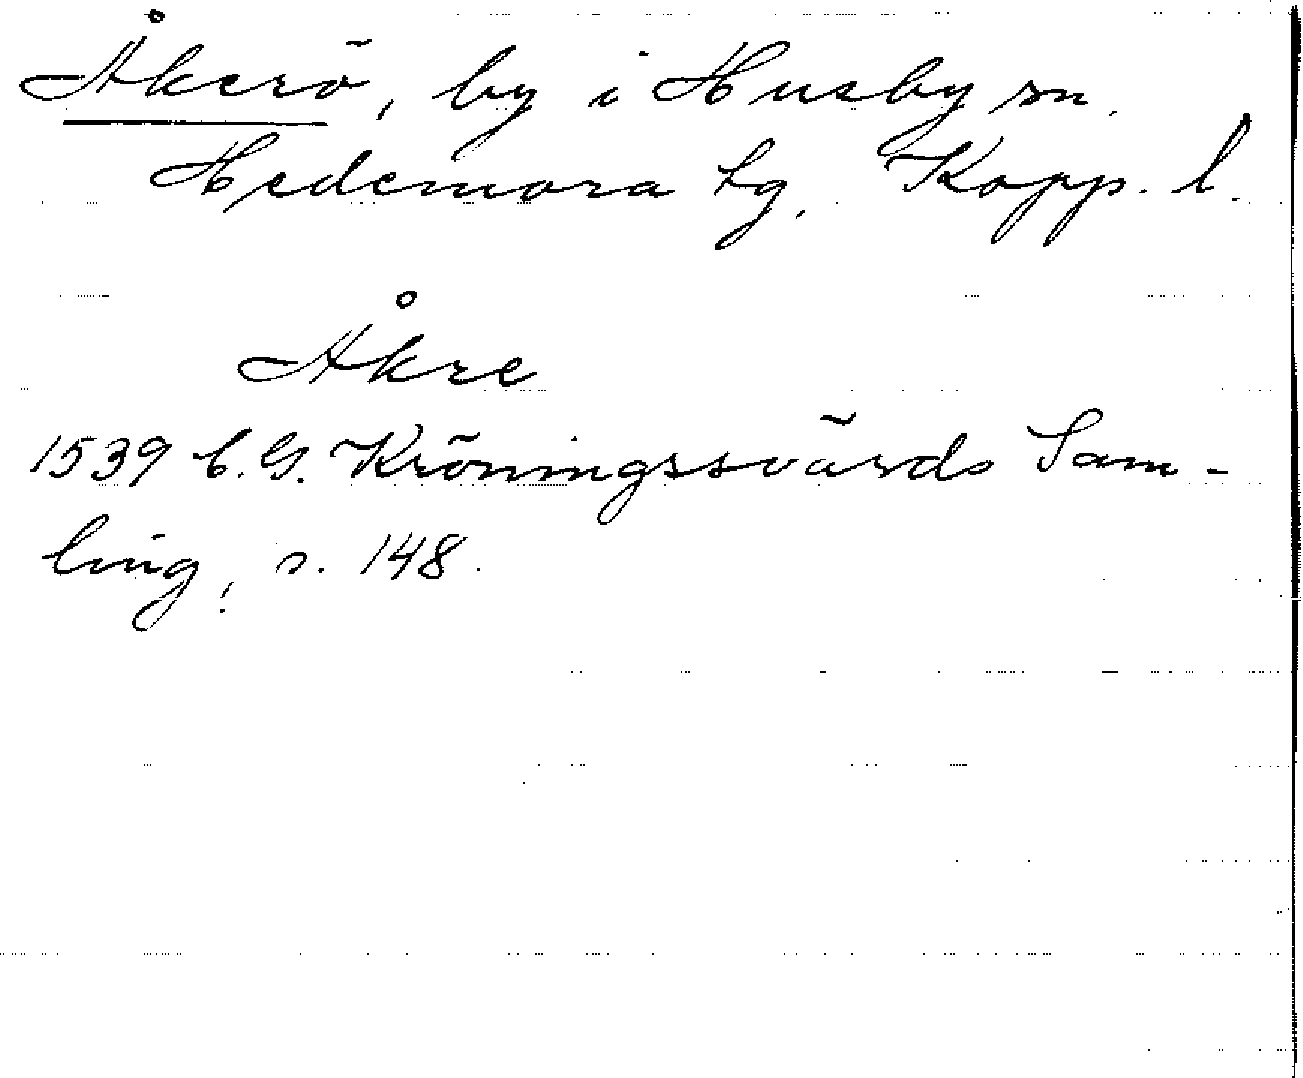 Åkerö, by i Husby sn.
Hedemora tg, Kopp. l.
Åkre
1539 C. G. Kröningssvärds Sam-
ling, s. 148.